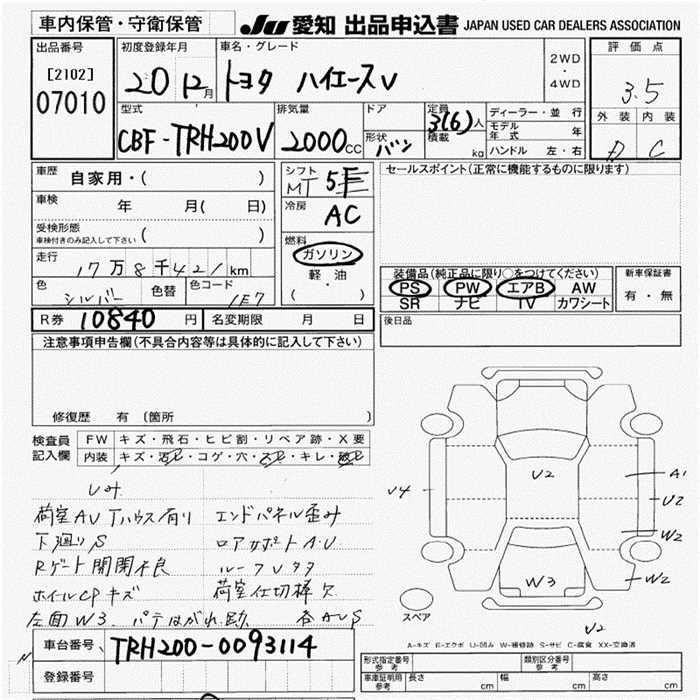 車内保管・守衛保管
JU 愛知 出品申込書 JAPAN USED CAR DEALERS ASSOCIATION
出品番号
[2102]
07010
初度登録年月
20 12月
車名・グレード
トヨタ ハイエースV
2WD
・
4WD
評価点
3.5
外装 内装
C
型式
CBF-TRH200V
排気量
2000cc
ドア
形状
バン
定員
3(6)人
積載
kg
ディーラー・並行
モデル年式 年
ハンドル 左・右
車歴
自家用・( )
車検
年 月( 日)
受検形態
車検付きのみ記入して下さい ( )
走行
17万8千421km
色
シルバー
色替
色コード
1E7
シフト
MT 5F
冷房
AC
燃料
ガソリン
軽・油
( )
セールスポイント(正常に機能するものに限ります)
装備品(純正品に限り○をつけてください)
PS PW エアB AW
SR ナビ TV カワシート
新車保証書
有・無
R券 10840円
名変期限 月 日
後日品
注意事項申告欄(不具合内容等は具体的に記入して下さい)
修復歴 有 (箇所 )
検査員
記入欄
FW キズ・飛石・ヒビ割・リペア跡・X要
内装 キズ・汚レ・コゲ・穴・スレ・キレ・破レ
荷室AUTハウス有り エンドパネル歪み
下廻りS ロアサポートA.U
Rゲート開閉不良 ルーフUタタ
ホイルCPキズ 荷室仕切棒欠
左面W3. パテはがれ跡 各AUS
U4
U2
W3
A1
U2
W2
W2
U2
スペア
A-キズ E-エクボ U-凹み W-補修跡 S-サビ C-腐食 XX-交換済
車台番号
TRH200-0093114
登録番号
形式指定番号
参考
類別区分番号
参考
車庫証明用
参考
長さ cm 幅 cm 高さ cm